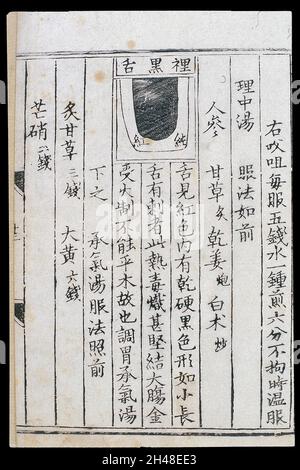 右吹咀每服五錢水一鍾煎六分不拘時温服
理中湯 服法如前
人參 甘草炙 乾姜炮 白术炒
裡黑舌
純紅
舌見紅色内有乾硬黑色形如小長
舌有刺者此熱毒熾甚堅結大腸金
受火制不能平木故也調胃承氣湯
下之 承氣湯服法照前
炙甘草三錢 大黄六錢
芒硝二錢
alamy
Image ID: 2H48EE3
www.alamy.com